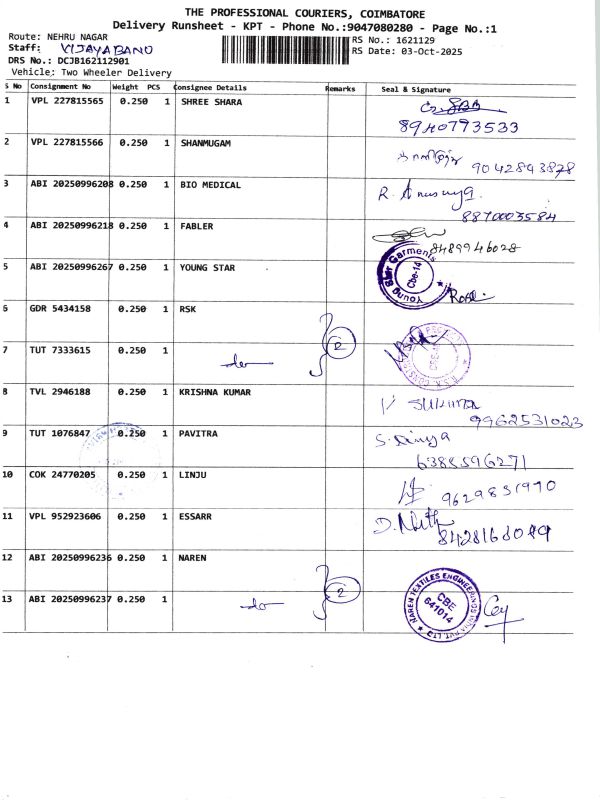 THE PROFESSIONAL COURIERS, COIMBATORE
Delivery Runsheet - KPT - Phone No.:9047080280 - Page No.:1
Route: NEHRU NAGAR
RS No.: 1621129
Staff: VIJAYABANU
RS Date: 03-Oct-2025
DRS No.: DCJB162112901
Vehicle: Two Wheeler Delivery
S No Consignment No Weight PCS Consignee Details Remarks Seal & Signature
1 VPL 227815565 0.250 1 SHREE SHARA
8940793533
2 VPL 227815566 0.250 1 SHANMUGAM
9042893878
3 ABI 20250996208 0.250 1 BIO MEDICAL R. Anusuya.
8870003584
4 ABI 20250996218 0.250 1 FABLER
8489946028
5 ABI 20250996267 0.250 1 YOUNG STAR Young Star Garments Cbe-14
6 GDR 5434158 0.250 1 RSK
2
7 TUT 7333615 0.250 1 do
8 TVL 2946188 0.250 1 KRISHNA KUMAR
9962531023
9 TUT 1076847 0.250 1 PAVITRA
6388596271
10 COK 24770205 0.250 1 LINJU
9629851970
11 VPL 952923606 0.250 1 ESSARR
12 ABI 20250996236 0.250 1 NAREN
2
NAREN TEXTILES ENGINEERINGS INDIA PVT. LTD CBE 641014
13 ABI 20250996237 0.250 1 do